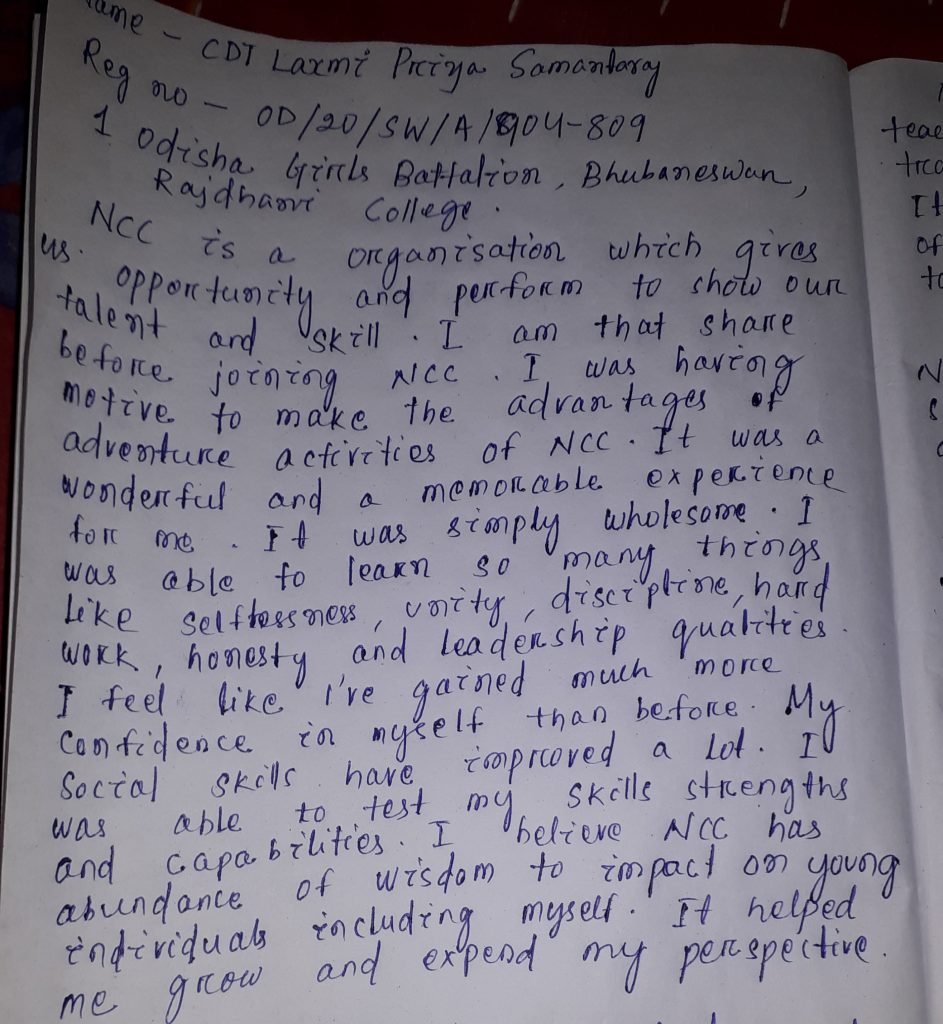 ame - CDT Laxmi Priya Samantaray
Reg no - OD/20/SW/A/904-809
1 Odisha Girls Battalion, Bhubaneswar,
Rajdhani College.
NCC is a organisation which gives
us. opportunity and perform to show our
talent and skill. I am that share
before joining NCC. I was having
motive to make the advantages of
adventure activities of NCC. It was a
wonderful and a memorable experience
for me. It was simply wholesome. I
was able to learn so many things
like selflessness, unity, discipline, hard
work, honesty and leadership qualities.
I feel like I've gained much more
Confidence in myself than before. My
Social skills have improved a lot. I
was able to test my skills strengths
and capabilities. I believe NCC has
abundance of wisdom to impact on young
individuals including myself. It helped
me grow and expend my perspective.
teac
It
of
to